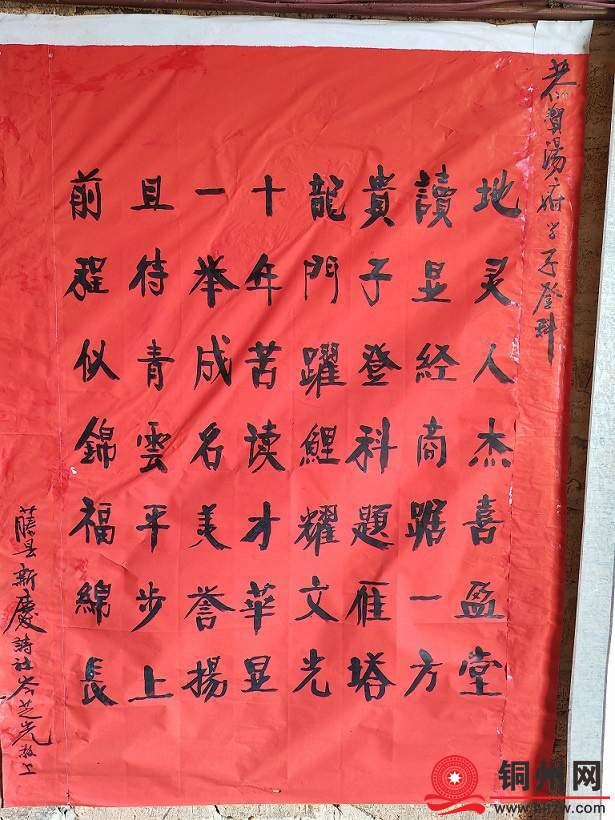 恭賀湯府学子登科
地灵人杰喜盈堂
讀显经商踞一方
貴子登科題雁塔
龍門躍鯉耀文光
十年苦读才華显
一举成名美誉揚
且待青雲平步上
前程似錦福綿長
藤县新慶詩社岑芝光敬上
铜州网